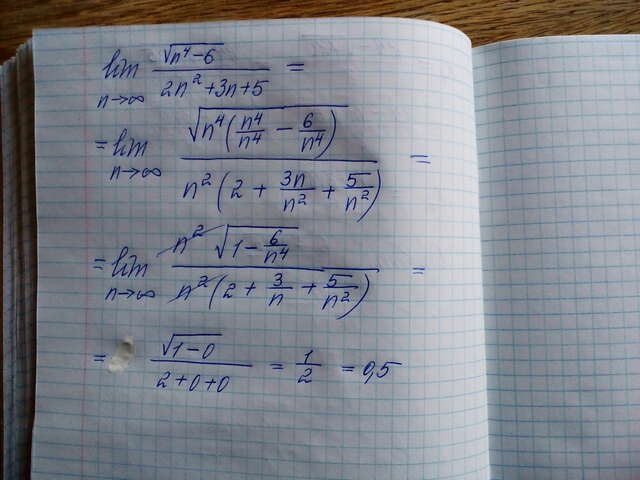 lim n→∞ √(n⁴-6) / (2n²+3n+5) =
= lim n→∞ √(n⁴(n⁴/n⁴ - 6/n⁴)) / (n²(2 + 3n/n² + 5/n²)) =
= lim n→∞ n² √(1 - 6/n⁴) / (n²(2 + 3/n + 5/n²)) =
= √(1-0) / (2+0+0) = 1/2 = 0,5